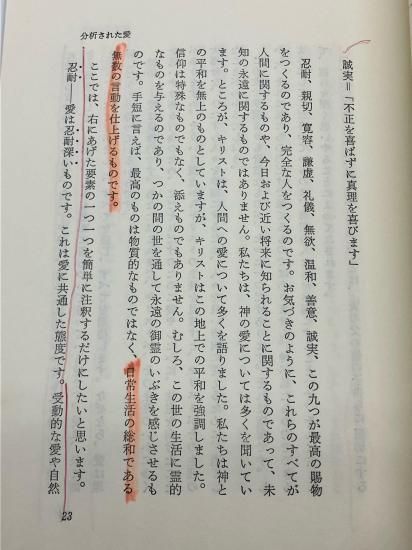 分析された愛
誠実=「不正を喜ばずに真理を喜びます」
忍耐、親切、寛容、謙虚、礼儀、無欲、温和、善意、誠実、この九つが最高の賜物
をつくるのであり、完全な人をつくるのです。お気づきのように、これらのすべてが
人間に関するものや、今日および近い将来に知られることに関するものであって、未
知の永遠に関するものではありません。私たちは、神の愛については多くを聞いてい
ます。ところが、キリストは、人間への愛について多くを語りました。私たちは神と
の平和を無上のものとしていますが、キリストはこの地上での平和を強調しました。
信仰は特殊なものでもなく、添えものでもありません。むしろ、この世の生活に霊的
なものを与えるのであり、つかの間の世を通して永遠の御霊のいぶきを感じさせるも
のです。手短に言えば、最高のものは物質的なものではなく、日常生活の総和である
無数の言動を仕上げるものです。
ここでは、右にあげた要素の一つ一つを簡単に注釈するだけにしたいと思います。
忍耐——愛は忍耐深いものです。これは愛に共通した態度です。受動的な愛や自然
23